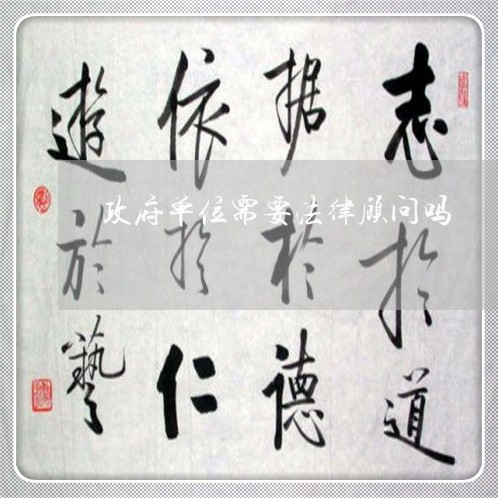 志扵道
据於德
依扵仁
遊於藝
政府单位需要法律顾问吗